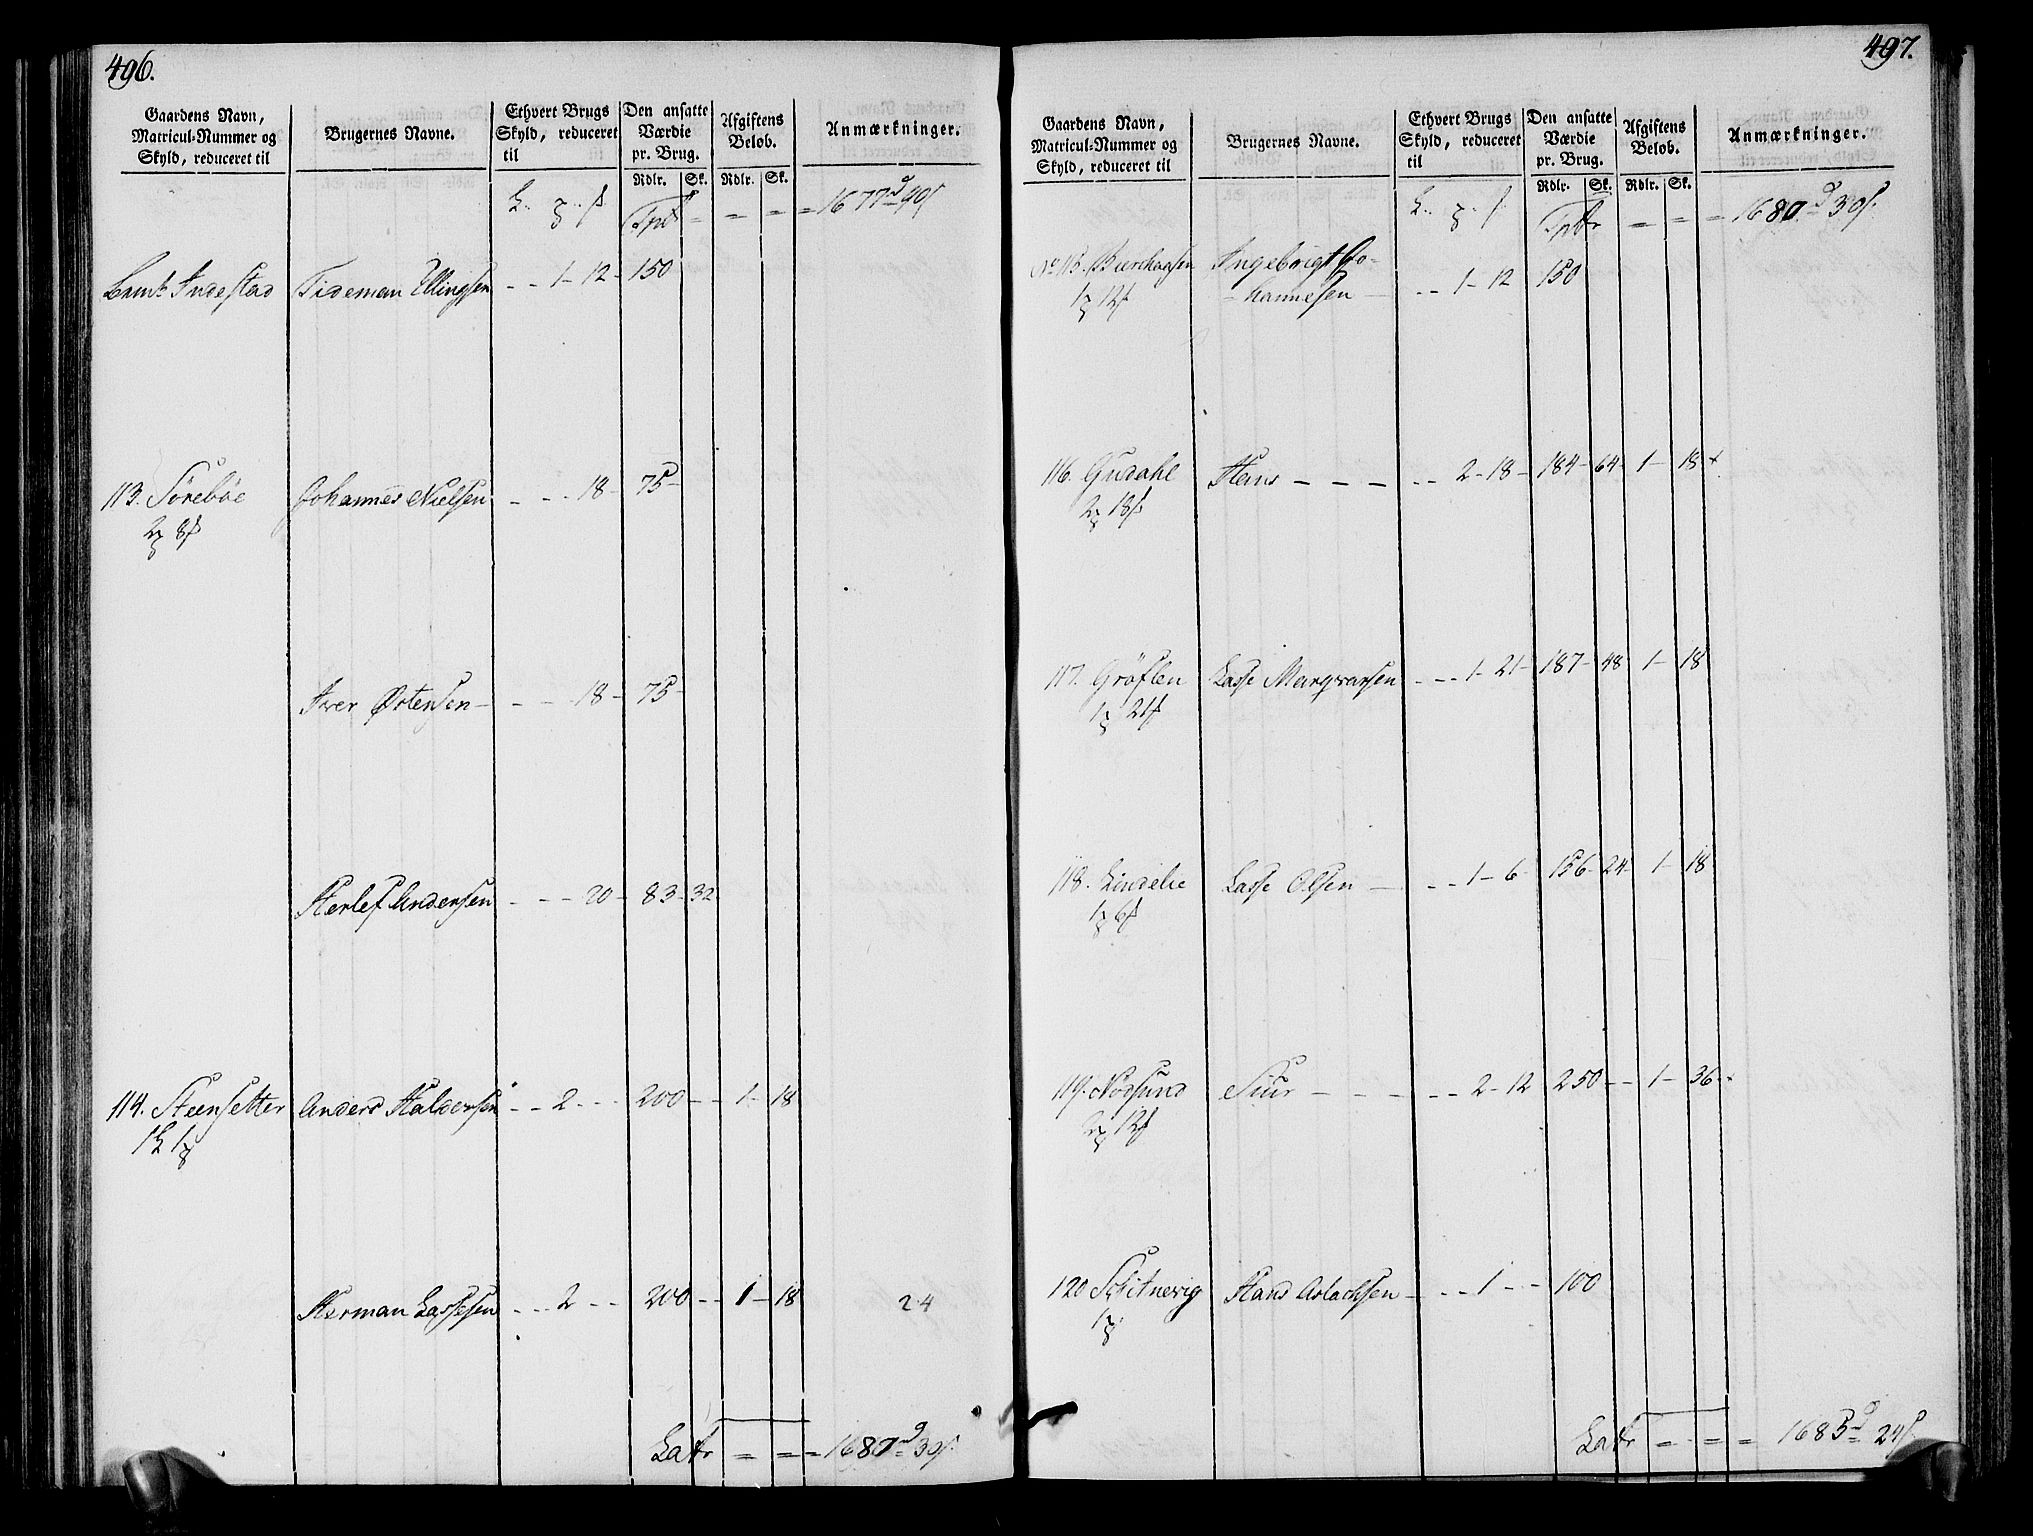 496.
Gaardens Navn, Matricul-Nummer og Skyld, reduceret til | Brugernes Navne. | Ethvert Brugs Skyld, reduceret til | Den ansatte Værdie pr. Brug. | Afgiftens Beløb. | Anmærkninger.
Rdlr. Sk. Rdlr. Sk.
Tpt = = = = 1677 d 90 s
Samt Indestad Tideman Ellingsen - - 1 - 12 - 150
113. Sørebøe Johannes Nielsen - - - 18 - 75 -
2 8
Iver Østensen - - - - 18 - 75 -
Herlef Andersen - - - 20 - 83 - 32
114. Steensetter Anders Haldorsen - - 2 - - - 200 - - 1 - 18
1 L 1
Herman Lassesen - - - 2 - - - 200 - - 1 - 18 24
Latr = = = 1680 d 30 s.
497.
Gaardens Navn, Matricul-Nummer og Skyld, reduceret til | Brugernes Navne. | Ethvert Brugs Skyld, reduceret til | Den ansatte Værdie pr. Brug. | Afgiftens Beløb. | Anmærkninger.
Rdlr. Sk. Rdlr. Sk.
Tptr = = = = 1680 d 30 s.
No 115. Ingebrigt Jo-
1 12 - hannesen - - - 1 - 12 150
116. Gudahl Hans - - - - - 2 - 18 - 184 - 64 1 - 18 +
2 18
117. Grøflen Lasse Marqvarsen - - - 1 - 21 - 187 - 48 1 - 18
1 21
118. Lindelie Lasse Olsen - - - 1 - 6 156 - 24 - 1 - 18
1 6
119. Nodsund Siur - - - - - - 2 - 12 250 - - 1 - 36 -
2 12
120 Schitnevig Hans Aslachsen - - - 1 - - 100
1
Latr = = = 1683 d 24 s.